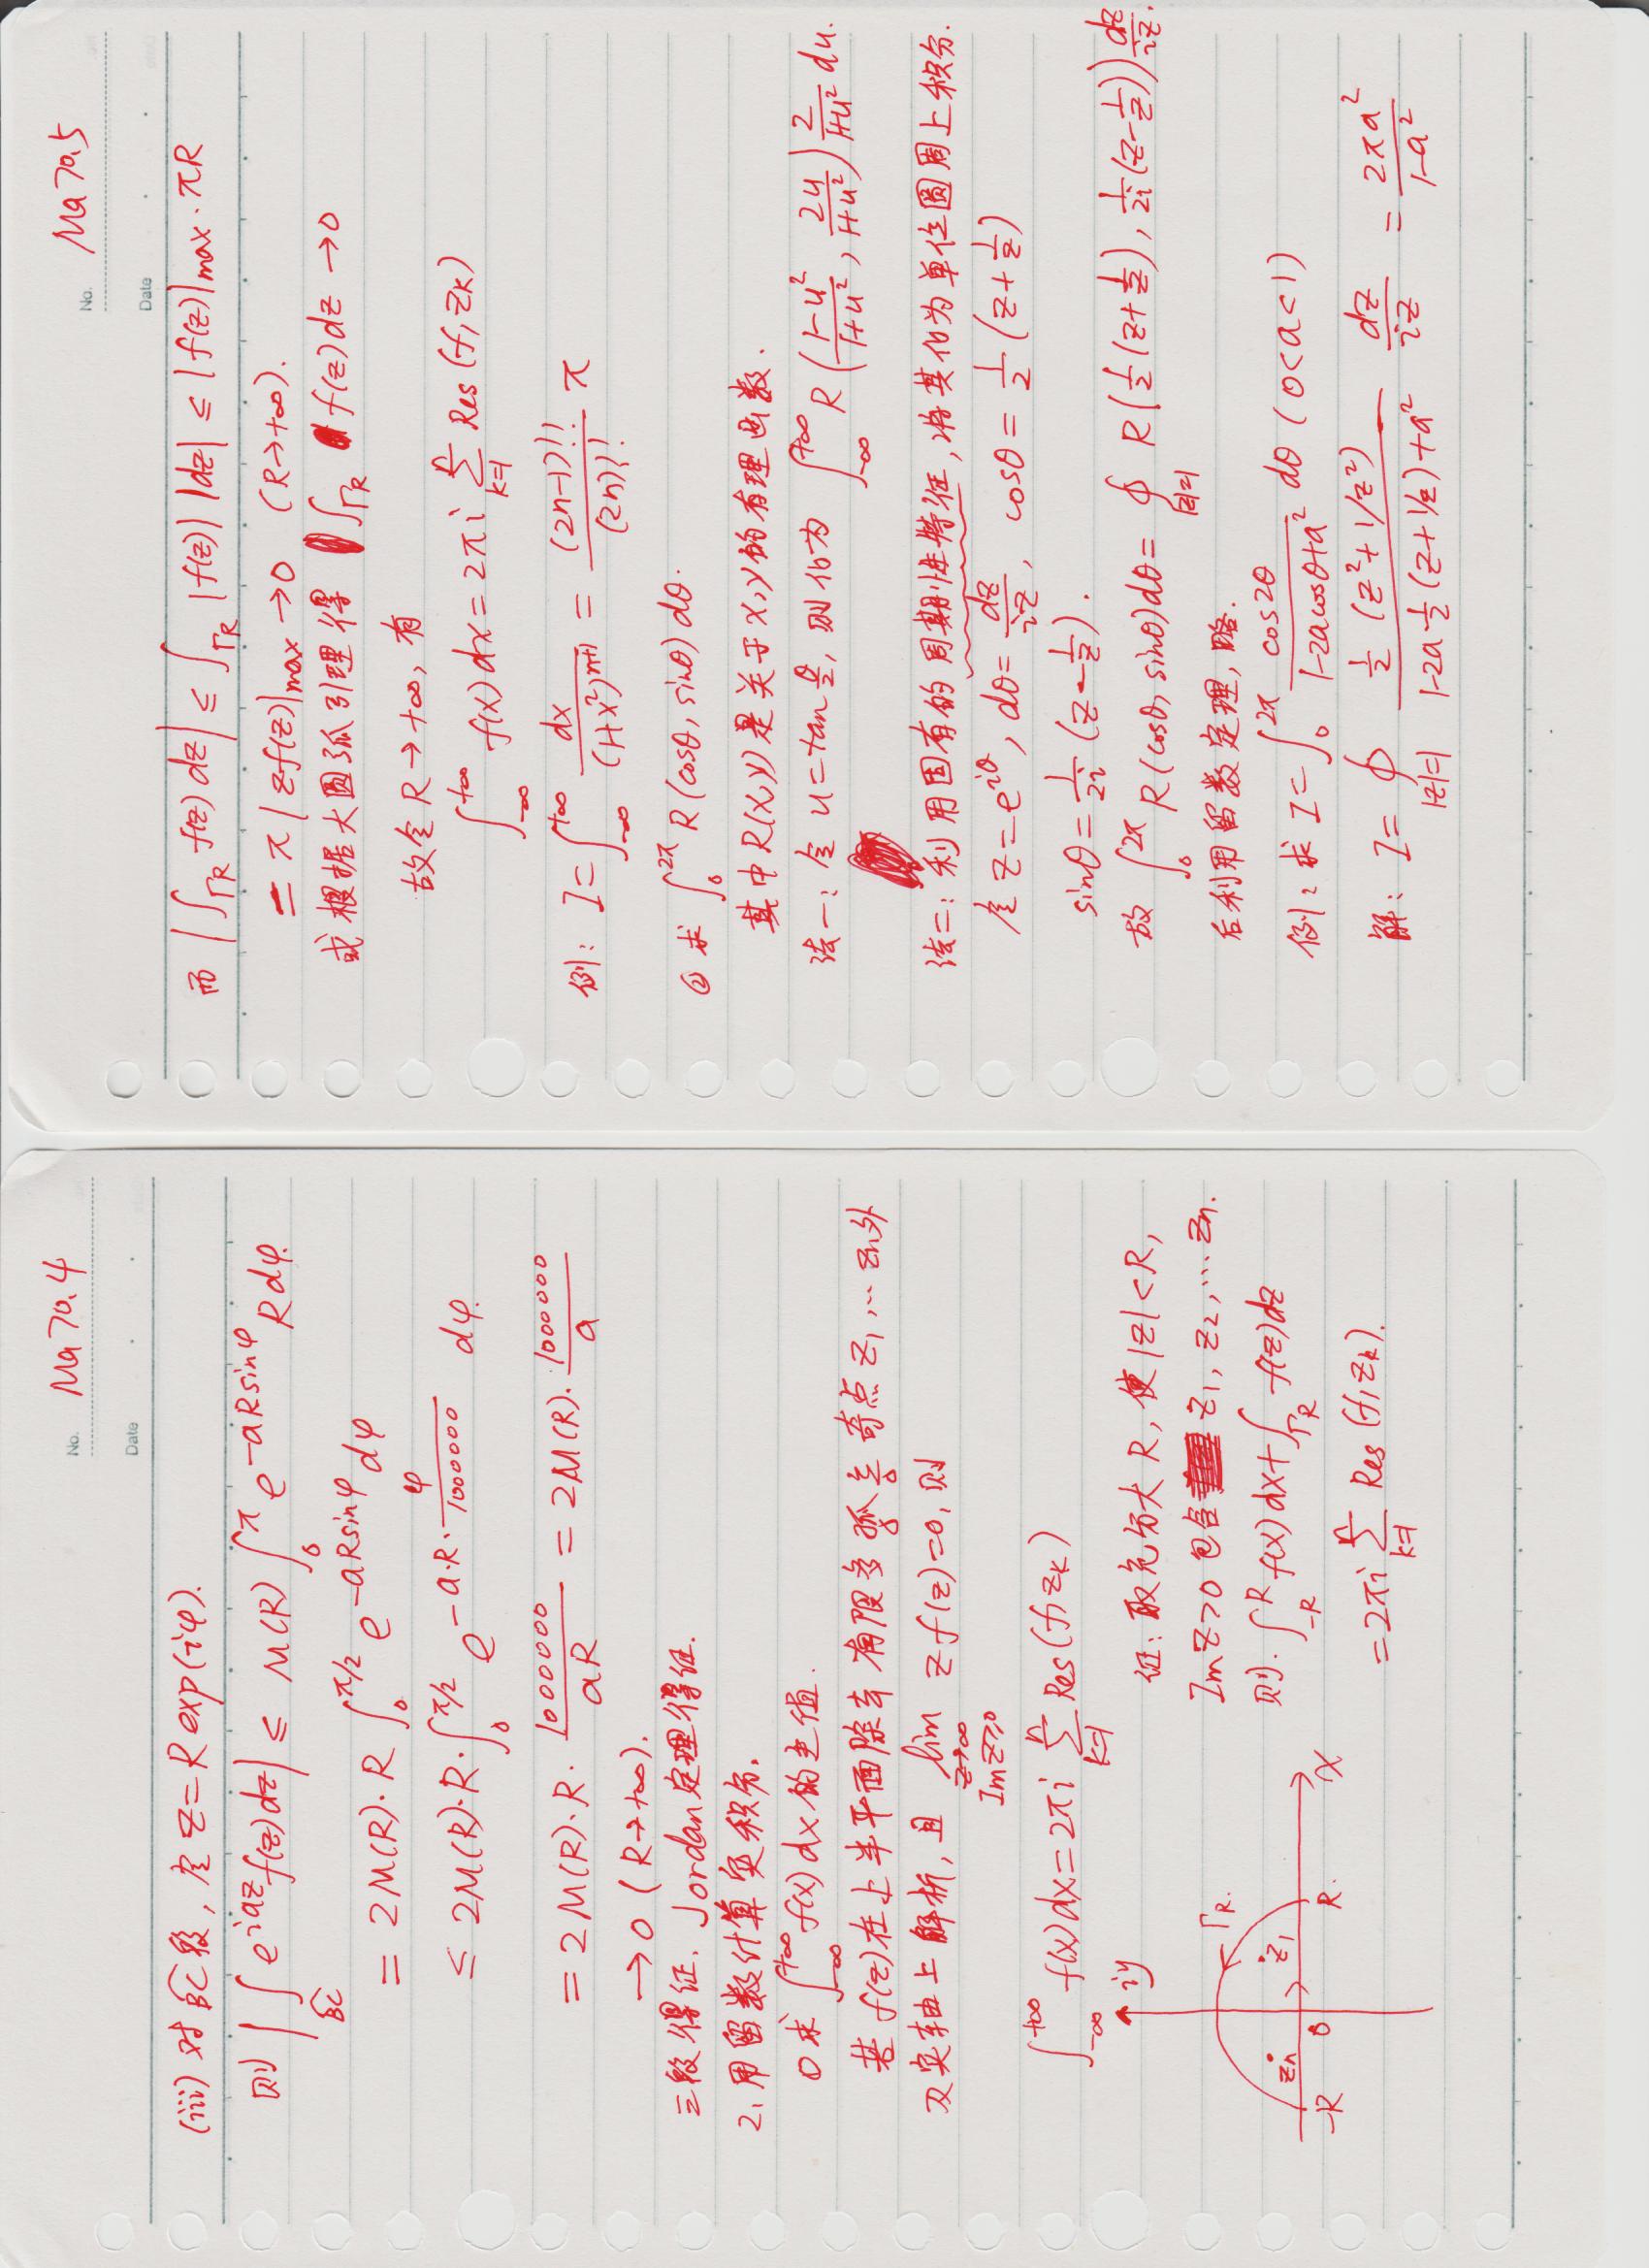 No. Ma70.4
Date
(iii) 对 B͡C 段, 令 z=R exp(iφ).
则 |∫_{B͡C} e^{iaz} f(z) dz| ≤ M(R) ∫_0^π e^{-aR sinφ} R dφ.
= 2M(R)·R ∫_0^{π/2} e^{-aR sinφ} dφ
≤ 2M(R)·R·∫_0^{π/2} e^{-a·R·φ/1000000} dφ.
= 2M(R)·R·1000000/(aR) = 2M(R)·1000000/a
→0 (R→+∞).
三段得证. Jordan定理得证.
2. 用留数计算实积分.
① 求 ∫_{-∞}^{+∞} f(x) dx 的主值.
若 f(z) 在上半平面除去有限多孤立奇点 z_1, … z_n 外
及实轴上解析, 且 lim_{z→∞, Im z≥0} z f(z)=0, 则
∫_{-∞}^{+∞} f(x) dx = 2πi ∑_{k=1}^{n} Res(f, z_k)
iy
证: 取充分大 R, 使 |z|<R,
Γ_R.
Im z>0 包含 z_1, z_2, … z_n.
z_n z_1
则. ∫_{-R}^{R} f(x) dx + ∫_{Γ_R} f(z) dz
-R 0 R. x
= 2πi ∑_{k=1}^{n} Res(f, z_k).
No. Ma70.5
Date
而 |∫_{Γ_R} f(z) dz| ≤ ∫_{Γ_R} |f(z)| |dz| ≤ |f(z)|_{max}·πR
= π |z f(z)|_{max} →0 (R→+∞).
或根据大圆弧引理得 ∫_{Γ_R} f(z) dz →0
故令 R→+∞, 有
∫_{-∞}^{+∞} f(x) dx = 2πi ∑_{k=1}^{n} Res(f, z_k)
例: I=∫_{-∞}^{+∞} dx/(1+x²)^{n+1} = (2n-1)!!/(2n)!! π
② 求 ∫_0^{2π} R(cosθ, sinθ) dθ.
其中 R(x,y) 是关于 x,y 的有理函数.
法一: 令 u=tan θ/2, 则化为 ∫_{-∞}^{+∞} R((1-u²)/(1+u²), 2u/(1+u²)) 2/(1+u²) du.
法二: 利用固有的周期性特征, 将其化为单位圆周上积分.
令 z=e^{iθ}, dθ=dz/(iz), cosθ=1/2 (z+1/z)
sinθ=1/(2i) (z-1/z).
故 ∫_0^{2π} R(cosθ, sinθ) dθ = ∮_{|z|=1} R(1/2 (z+1/z), 1/(2i) (z-1/z)) dz/(iz).
后利用留数定理, 略.
例: 求 I=∫_0^{2π} cos2θ/(1-2a cosθ+a²) dθ (0<a<1)
解: I=∮_{|z|=1} (1/2 (z²+1/z²))/(1-2a 1/2 (z+1/z)+a²) dz/(iz) = 2πa²/(1-a²)